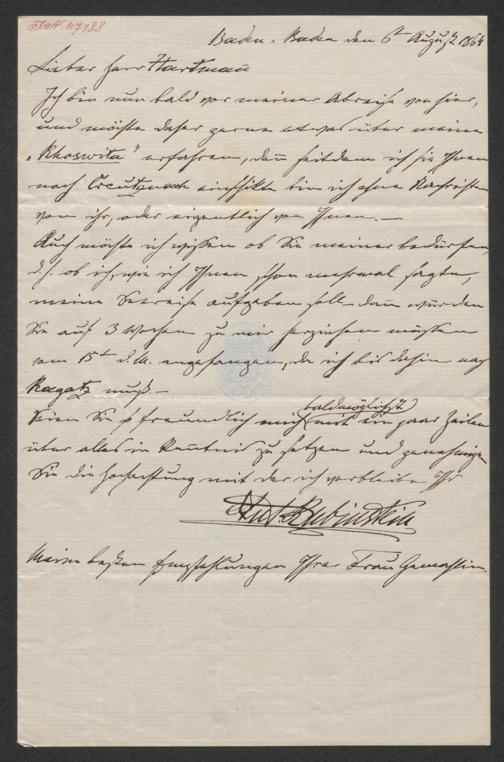 I.N. 47188
Baden-Baden den 6ten August 1864
Lieber Herr Hartmann
Ich bin nun bald vor meiner Abreise von hier,
und möchte daher gerne etwas über meine
„Rhoswita" erfahren, denn seitdem ich sie Ihnen
nach Creutznach bin ich ohne Nachrichten
von ihr, oder eigentlich von Ihnen. —
Auch möchte ich wissen ob Sie meiner bedürfen,
d.h. ob ich, wie ich Ihnen schon mehrmal sagte,
meine aufgeben soll dann würden
Sie auf 3 Wochen zu mir müssen
vom 15ten d.M. angefangen, da ich bis dahin nach
Ragatz muß —
Seien Sie so freundlich mich mit ein paar Zeilen
baldmöglichst
über alles in Kenntnis zu setzen und genehmigen
Sie die Hochachtung mit der ich verbleibe Ihr
Ant. Rubinstein
Meine besten Empfehlungen Ihrer Frau Gemahlin.